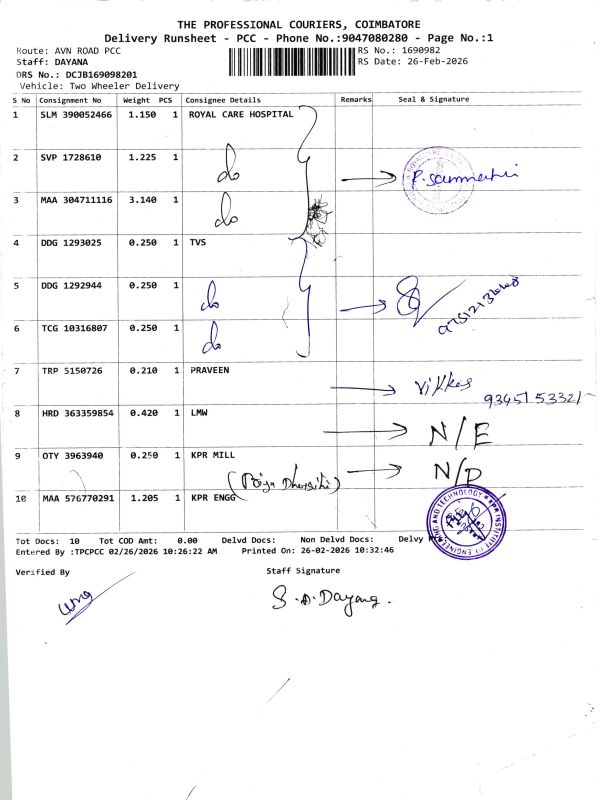 THE PROFESSIONAL COURIERS, COIMBATORE
Delivery Runsheet - PCC - Phone No.:9047080280 - Page No.:1
Route: AVN ROAD PCC
RS No.: 1690982
Staff: DAYANA
RS Date: 26-Feb-2026
DRS No.: DCJB169098201
Vehicle: Two Wheeler Delivery
S No Consignment No Weight PCS Consignee Details Remarks Seal & Signature
1 SLM 390052466 1.150 1 ROYAL CARE HOSPITAL
2 SVP 1728610 1.225 1 do
3 MAA 304711116 3.140 1 do
4 DDG 1293025 0.250 1 TVS
5 DDG 1292944 0.250 1 do
6 TCG 10316807 0.250 1 do
7 TRP 5150726 0.210 1 PRAVEEN
9345153321
8 HRD 363359854 0.420 1 LMW N/E
9 OTY 3963940 0.250 1 KPR MILL N/D
10 MAA 576770291 1.205 1 KPR ENGG
KPR INSTITUTE OF ENGINEERING AND TECHNOLOGY
Tot Docs: 10 Tot COD Amt: 0.00 Delvd Docs: Non Delvd Docs: Delvy
Entered By :TPCPCC 02/26/2026 10:26:22 AM Printed On: 26-02-2026 10:32:46
Verified By
Staff Signature
S.A.Dayana.